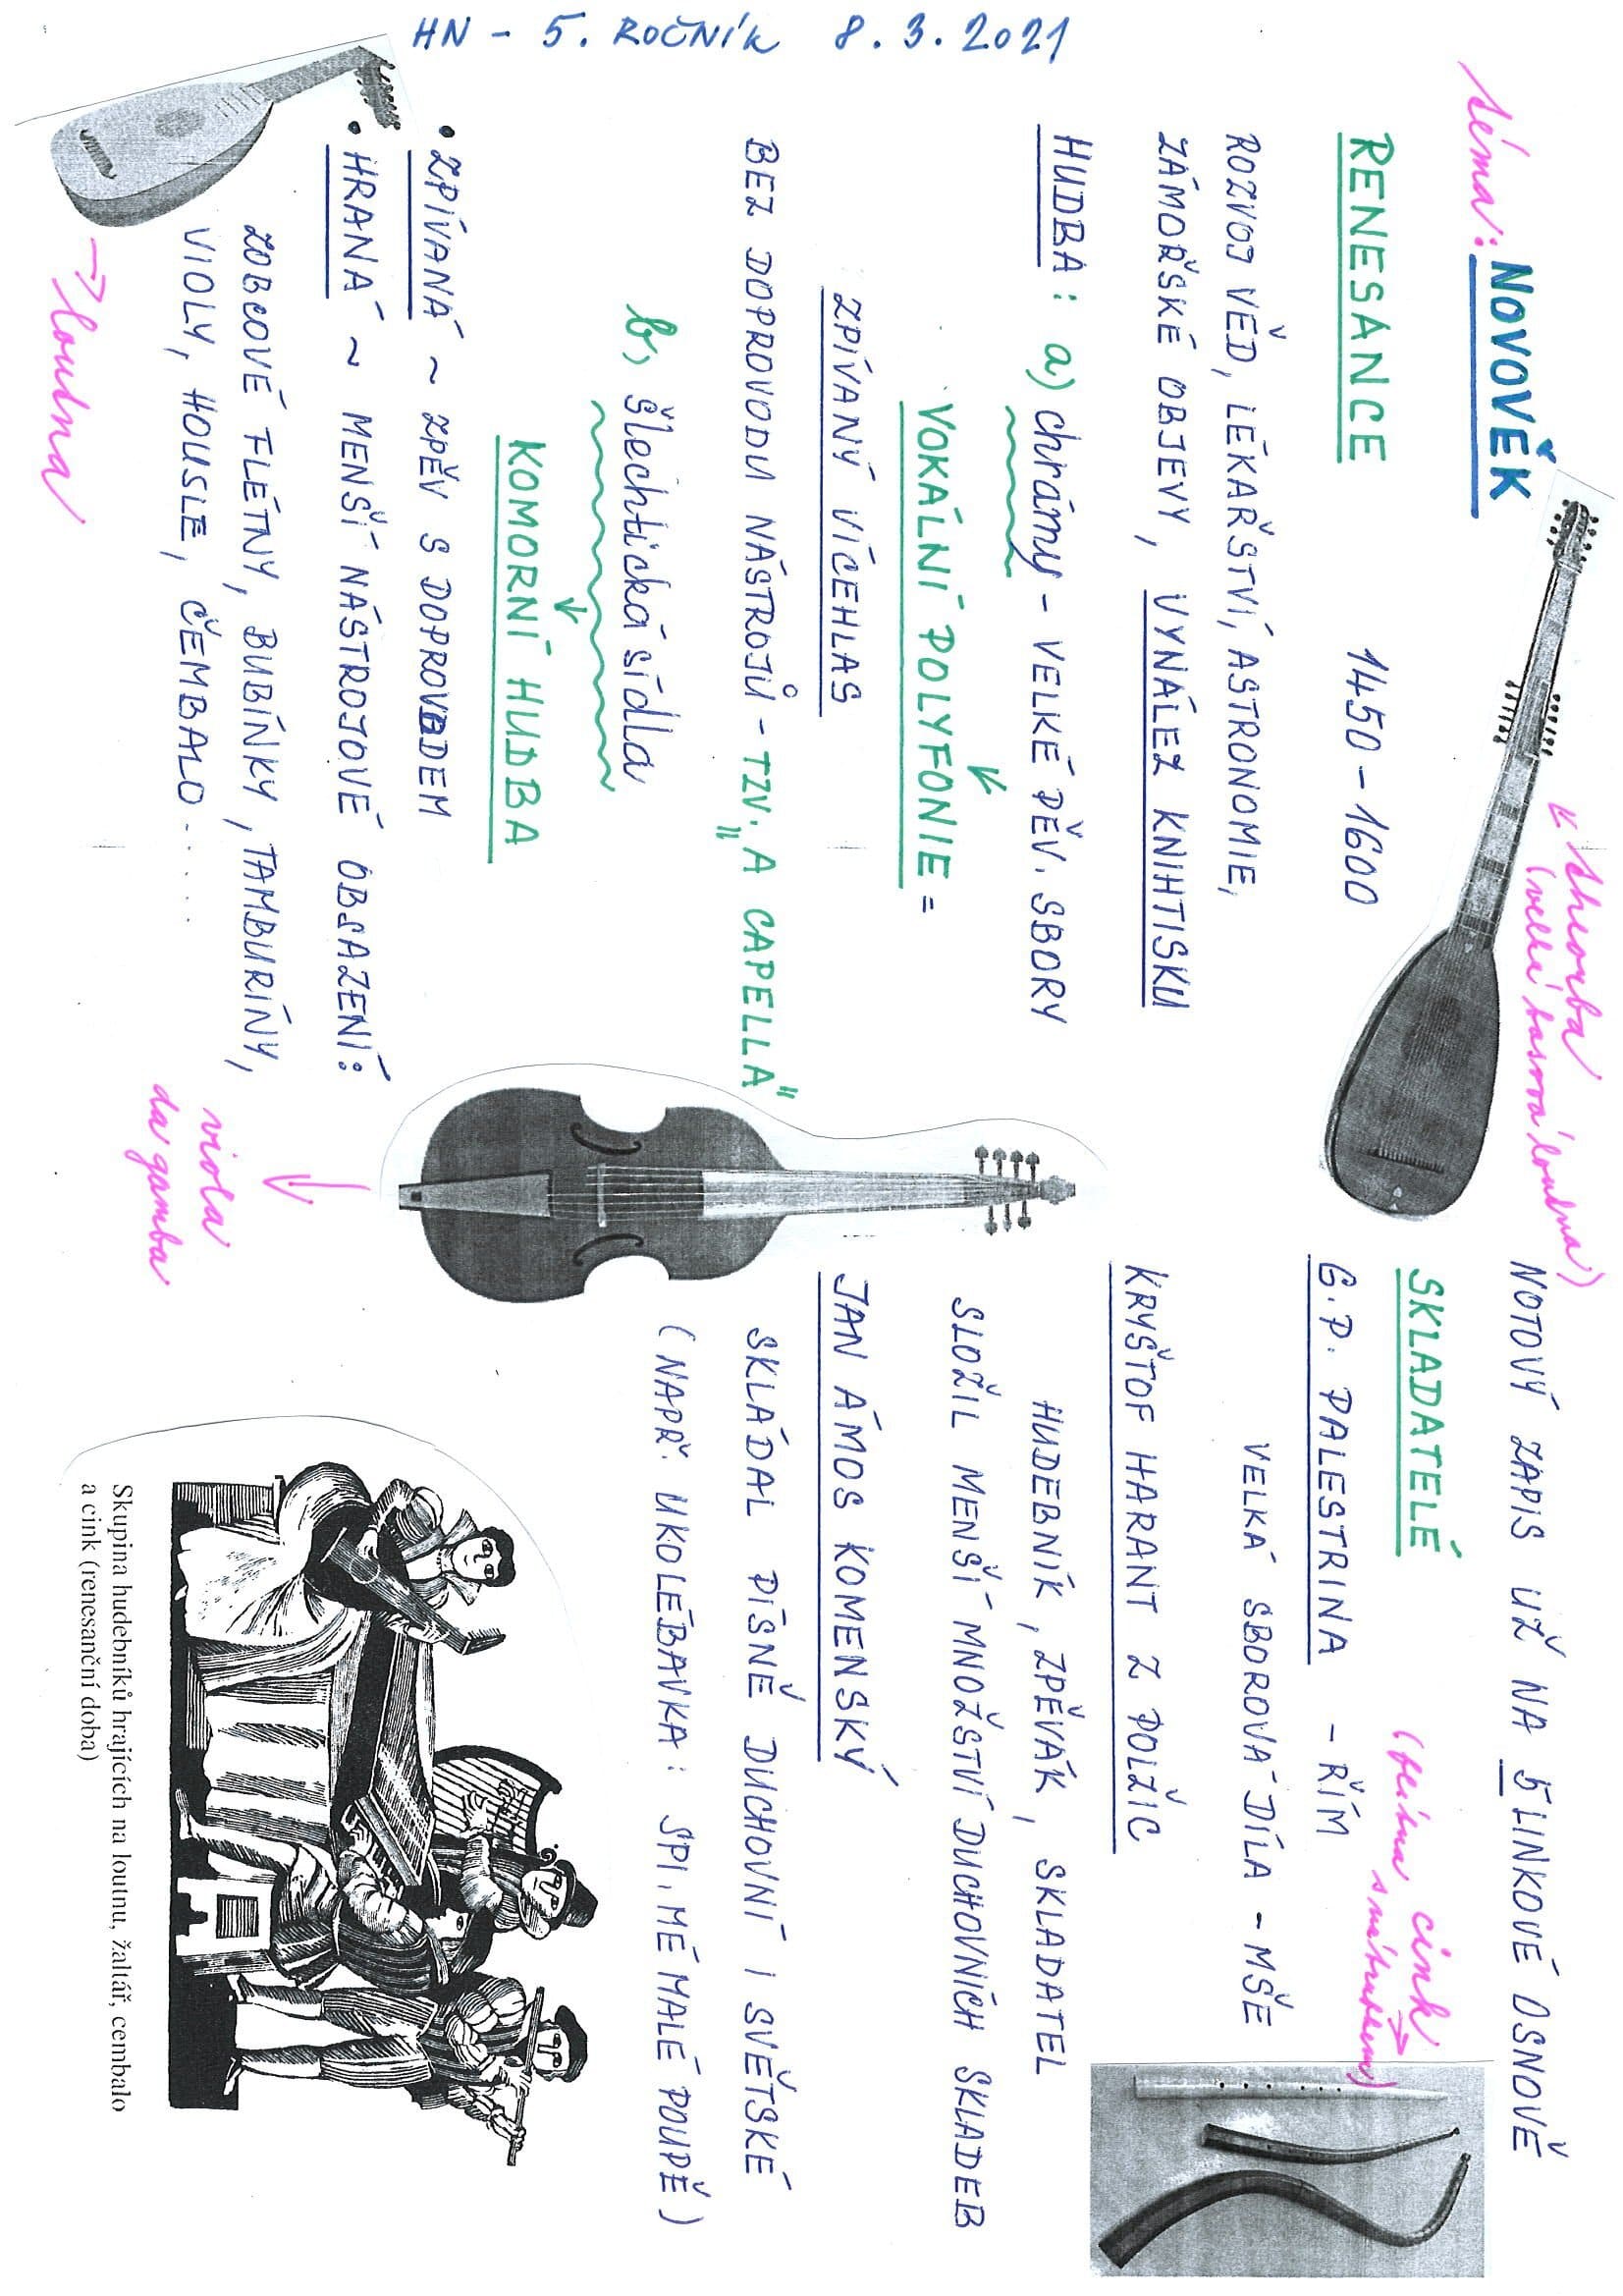 HN - 5. ROČNÍK 8.3.2021
téma: NOVOVĚK
RENESANCE 1450-1600
ROZVOJ VĚD, LÉKAŘSTVÍ, ASTRONOMIE,
ZÁMOŘSKÉ OBJEVY, VYNÁLEZ KNIHTISKU
HUDBA: a) chrámy - VELKÉ PĚV. SBORY
VOKÁLNÍ POLYFONIE =
ZPÍVANÝ VÍCEHLAS
BEZ DOPROVODU NÁSTROJŮ - TZV. „A CAPELLA"
b) šlechtická sídla
KOMORNÍ HUDBA
• ZPÍVANÁ ~ ZPĚV S DOPROVODEM
• HRANÁ ~ MENŠÍ NÁSTROJOVÉ OBSAZENÍ:
ZOBCOVÉ FLÉTNY, BUBÍNKY, TAMBURÍNY,
VIOLY, HOUSLE, ČEMBALO.....
→ loutna
theorba
(velká basová loutna)
viola
da gamba
NOTOVÝ ZÁPIS UŽ NA 5 LINKOVÉ OSNOVĚ
SKLADATELÉ
cink →
(flétna s nátrubkem)
G.P. PALESTRINA - ŘÍM
VELKÁ SBOROVÁ DÍLA - MŠE
KRYŠTOF HARANT Z POLŽIC
HUDEBNÍK, ZPĚVÁK, SKLADATEL
SLOŽIL MENŠÍ MNOŽSTVÍ DUCHOVNÍCH SKLADEB
JAN ÁMOS KOMENSKÝ
SKLÁDAL PÍSNĚ DUCHOVNÍ I SVĚTSKÉ
(NAPŘ. UKOLÉBAVKA: SPI, MÉ MALÉ POUPĚ)
Skupina hudebníků hrajících na loutnu, žaltář, cembalo
a cink (renesanční doba)